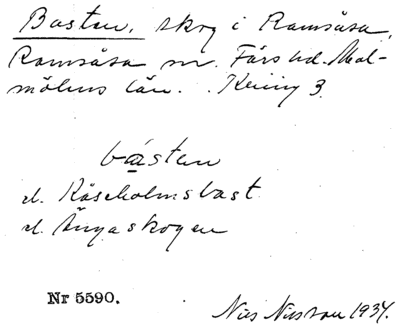 Bastun, skog i Ramsåsa,
Ramsåsa sn. Färs hd. Mal-
möhus län. 3.
bástun
el. Råseholmsbast
el. Ängaskogen
Nr 5590.
Nils Nilsson 1934.